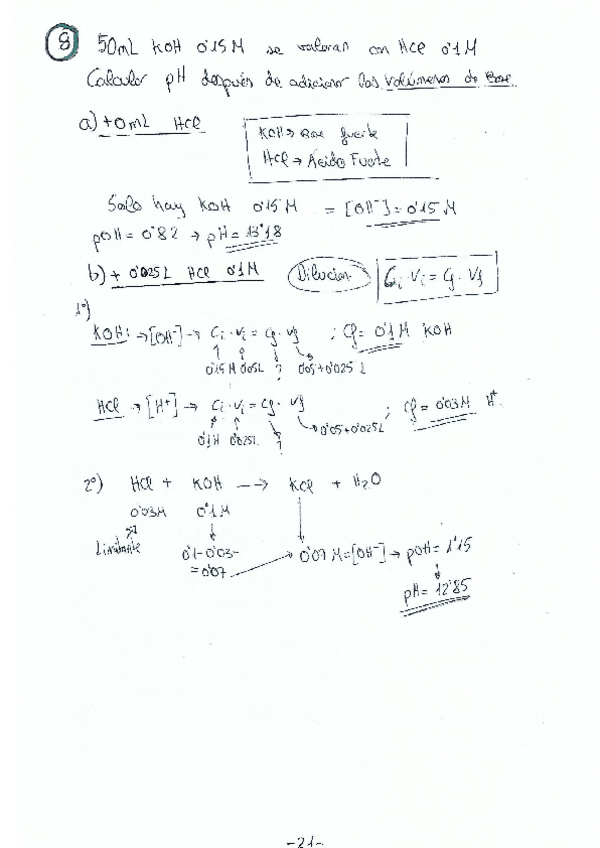 8 50mL KOH 0'15M se valoran con HCl 0'1M
Calcular pH después de adicionar los volúmenes de Base
a) +0mL HCl
KOH → Base fuerte
HCl → Ácido Fuerte
Solo hay KOH 0'15M = [OH⁻] = 0'15M
pOH = 0'82 → pH = 13'18
b) + 0'025L HCl 0'1M Dilución Ci·Vi = Cf·Vf
1º)
KOH: → [OH⁻] → Ci·Vi = Cf·Vf ; Cf = 0'1M KOH
0'15M 0'05L ? 0'05+0'025L
HCl → [H⁺] → Ci·Vi = Cf·Vf ; Cf = 0'03M H⁺
0'1M 0'025L ? 0'05+0'025L
2º) HCl + KOH → KCl + H₂O
0'03M 0'1M
Limitante 0'1-0'03= → 0'07M = [OH⁻] → pOH = 1'15
=0'07
pH = 12'85
-21-